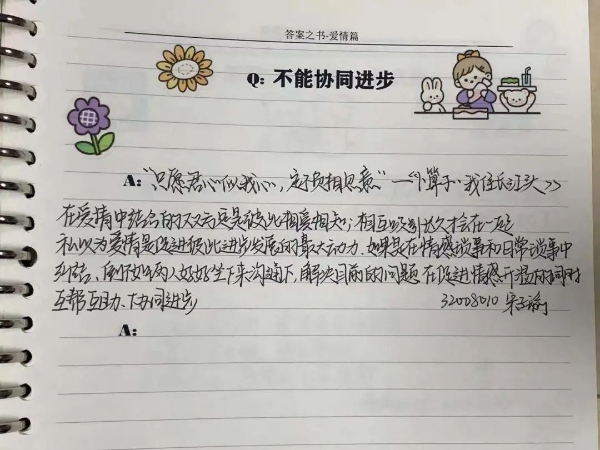 答案之书-爱情篇
Q: 不能协同进步
A: "只愿君心似我心，定不负相思意"——《卜算子·我住长江头》
在爱情中结合的双方应是彼此相爱相知，相互吸引才会在一起
私以为爱情是促进彼此进步发展的最大动力.如果是在情感琐事和日常琐事中
纠结、两人好好坐下来沟通下,解决目前的问题 在促进情感升温的同时
互帮互助、协同进步
32008010 宋
A: